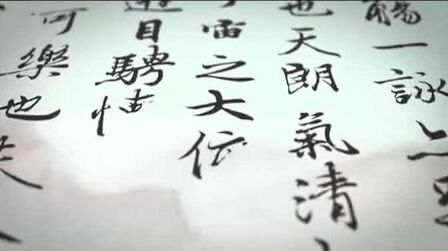 觴一詠
也天朗氣清
宙之大
遊目騁
可樂也夫